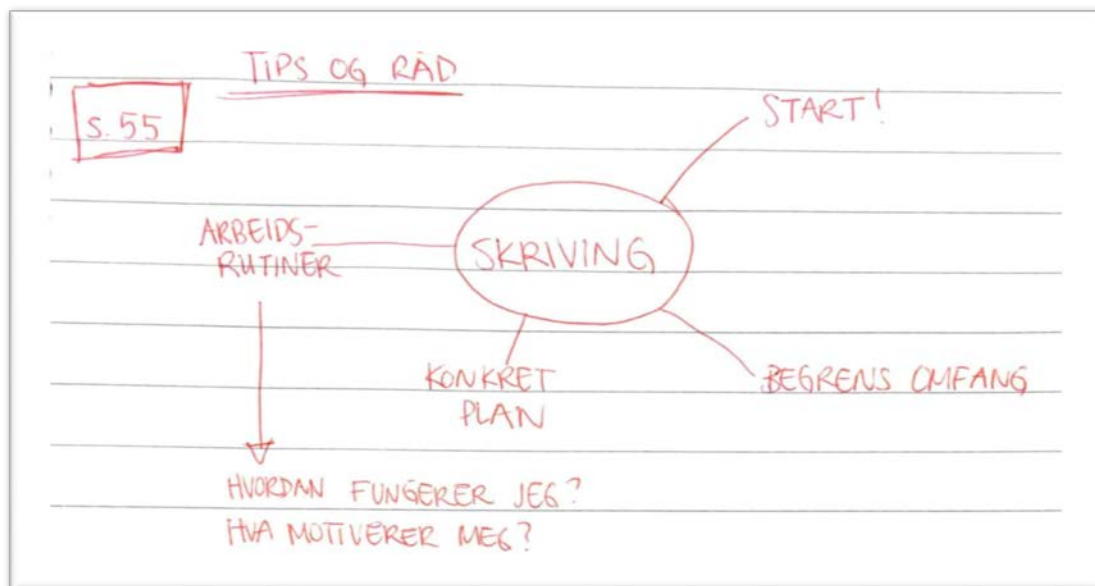 TIPS OG RÅD
s. 55
START!
ARBEIDS-
RUTINER
SKRIVING
KONKRET
PLAN
BEGRENS OMFANG
HVORDAN FUNGERER JEG?
HVA MOTIVERER MEG?